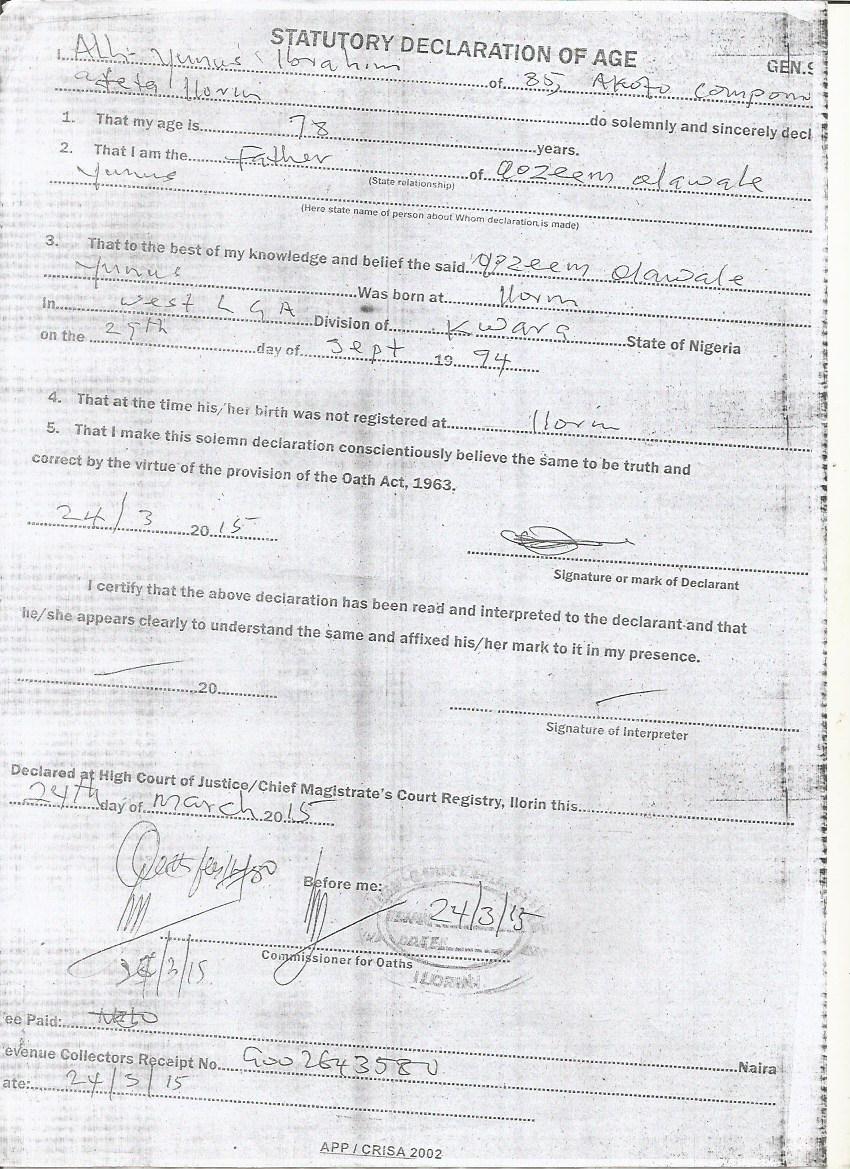 STATUTORY DECLARATION OF AGE
GEN.S
I, Alh. Yunus Ibrahim of 85, Akoto Compoun
Ilorin do solemnly and sincerely decl
1. That my age is 78 years.
2. That I am the Father of Qozeem olawale
(State relationship)
Yunus
(Here state name of person about Whom declaration is made)
3. That to the best of my knowledge and belief the said Qozeem olawale
Yunus Was born at Ilorin
In west L G A Division of Kwara State of Nigeria
on the 29th day of Sept 19 94
4. That at the time his/her birth was not registered at Ilorin
5. That I make this solemn declaration conscientiously believe the same to be truth and
correct by the virtue of the provision of the Oath Act, 1963.
24/3 20 15
Signature or mark of Declarant
I certify that the above declaration has been read and interpreted to the declarant and that
he/she appears clearly to understand the same and affixed his/her mark to it in my presence.
20
Signature of Interpreter
Declared at High Court of Justice/Chief Magistrate's Court Registry, Ilorin this
24th day of March 2015
Before me:
24/3/15
Commissioner for Oaths
ILORIN
/3/15
ee Paid:
Naira
evenue Collectors Receipt No. G002643580
ate: 24/3/15
APP / CRISA 2002